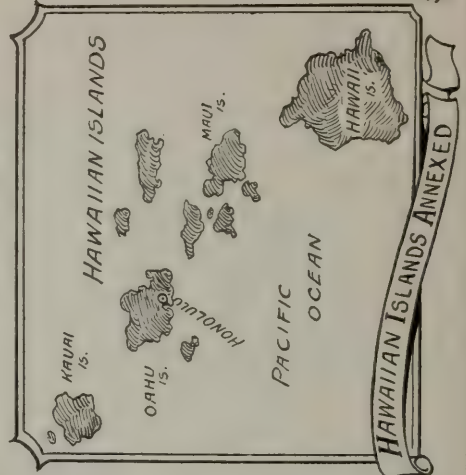 HAWAIIAN ISLANDS
KAUAI
IS.
OAHU
IS.
HONOLULU
MAUI
IS.
HAWAII
IS.
PACIFIC
OCEAN
HAWAIIAN ISLANDS ANNEXED